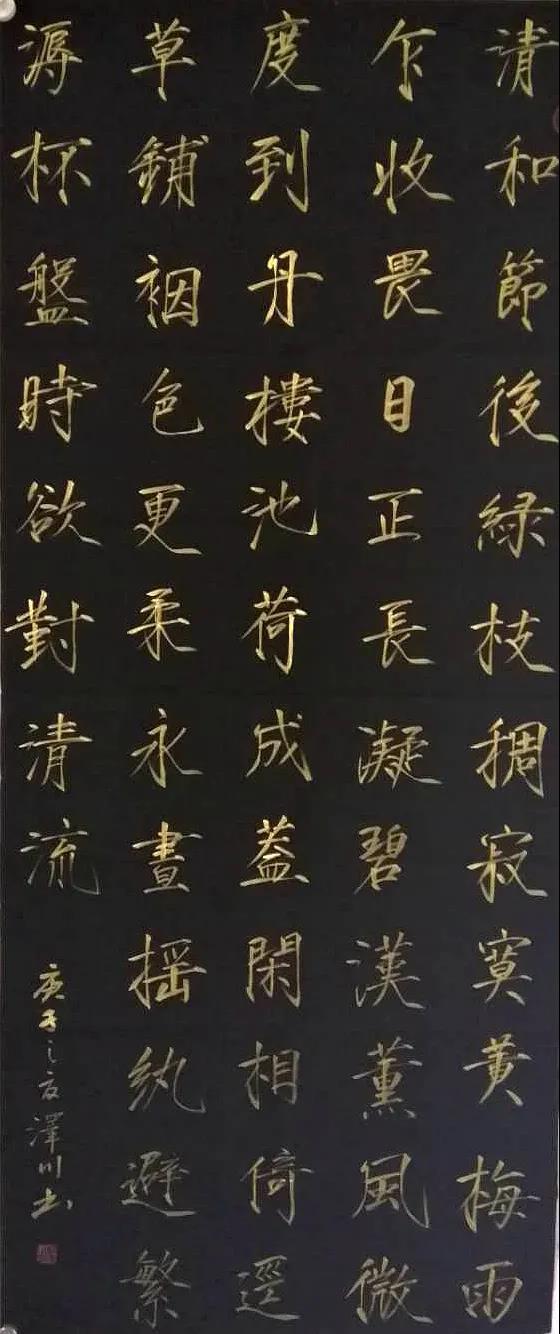 清和節後緑枝稠寂寞黄梅雨
乍收畏日正長凝碧漢薰風微
度到丹樓池荷成蓋閑相倚逕
草鋪裀色更柔永晝摇紈避繁
溽杯盤時欲對清流
庚子之夏澤川书